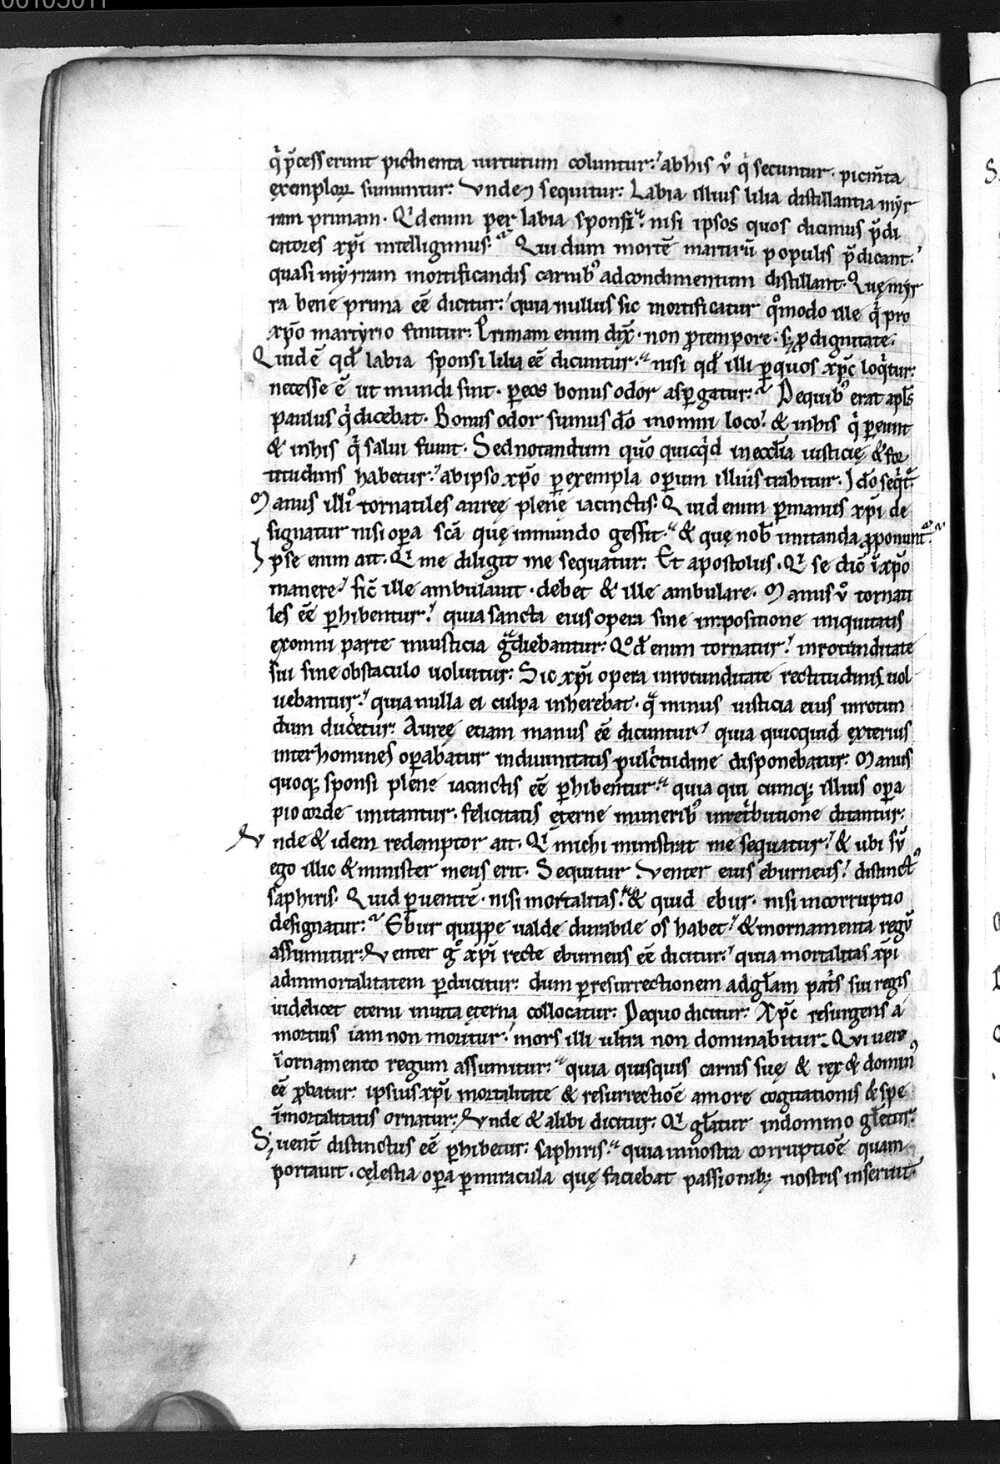 00105011
q̄ p̄cesserunt picmenta uirtutum coluntur: abhis ů q̇ secuntur. picm̄ta
exemploꝝ sumuntur: Vnde ⁊ sequitur: Labia illius lilia distillantia myr
ram primam. Qđ enim per labia sponsi nisi ipsos quos dicimus p̄di
catores xp̄i intelligimus. Qui dum mortē martirū populis p̄dicant.
quasi myrram mortificandis carnib; ad condimentum distillant. Quę myr
ra bene prima eē dicitur: quia nullus sic mortificatur qͦmodo ille q̇ pro
xp̄o martyrio finitur: Primam enim dix̄. non ꝓ tempore. sꝫ ꝓ dignitate.
Quid ē qđ labia sponsi lilia eē dicuntur. nisi qđ illi ꝑ quos xp̄c loq̇tur:
necesse ē ut mundi sint. ꝑ eos bonus odor aspergatur: De quib; erat apl̄s
paulus q̇ dicebat. Bonus odor sumus dō in omni loco. & in his q̇ pereunt
& in his q̇ salui fiunt. Sed notandum quō quicq̇d in eccl̄ia iusticię & for
titudinis habetur: ab ipso xp̄o ꝑ exempla operum illius trahitur. Idō seq̇t̄
Manus illi; tornatiles aureę plenę iacinctis: Quid enim ꝑ manus xp̄i de
signatur nisi opera sc̄a quę in mundo gessit. & quę nob̄ imitanda ꝓponunt̄.
Ipse enim ait. Q̇ me diligit me sequatur: Et apostolus. Q̇ se dic̄ ī xp̄o
manere sic̄ ille ambulauit. debet & ille ambulare. Manus ů tornati
les eē ꝑhibentur. quia sancta eius opera sine inpositione iniquitatis
ex omni parte in iusticia gͣdiebantur: Qđ enim tornatur. in rotunditate
sui sine obstaculo uoluitur: Sic xp̄i opera in rotunditate rectitudinis uol
uebantur. quia nulla ei culpa inherebat. qͣ minus iusticia eius in rotun
dum duceretur: Aureę etiam manus eē dicuntur. quia quicquid exterius
inter homines operabatur in diuinitatis pulc̄tudine disponebatur: Manus
quoq; sponsi plenę iacinctis eē ꝑhibentur: quia qui cumq; illius opera
pio corde imitantur. felicitatis eternę munerib; in retributione ditantur:
Vnde & idem redemptor ait. Q̇ michi ministrat me sequatur. & ubi sū
ego illic & minister meus erit. Sequitur Venter eius eburneus. distinct;
saphiris. Quid ꝑ uentrē. nisi mortalitas. & quid ebur. nisi incorruptio
designatur: Ebur quippe ualde durabile os habet. & in ornamenta regū
assumitur: Venter gͦ xp̄i recte eburneus eē dicitur: quia mortalitas xp̄i
ad inmortalitatem ꝑducitur: dum ꝑ resurrectionem ad gl̄am patͥs sui regis
uidelicet eterni in uita ęterna collocatur: De quo dicitur: Xp̄c resurgens a
mortuis iam non moritur: mors illi ultra non dominabitur. Qui uere
ī ornamento regum assumitur: quia quisquis carnis suę & rex & domin;
eē ꝓbatur: ipsius xp̄i mortalitate & resurrectiōe amore cogitationis & spe
īmortalitatis ornatur: Vnde & alibi dicitur: Q̇ gl̄atur in domino gl̄etur.
S; uent̄ distinctus eē ꝑhibetur: saphiris. quia in nostra corruptiōe quam
portauit. cęlestia opera ꝑ miracula quę faciebat passionib; nostris inseruit.